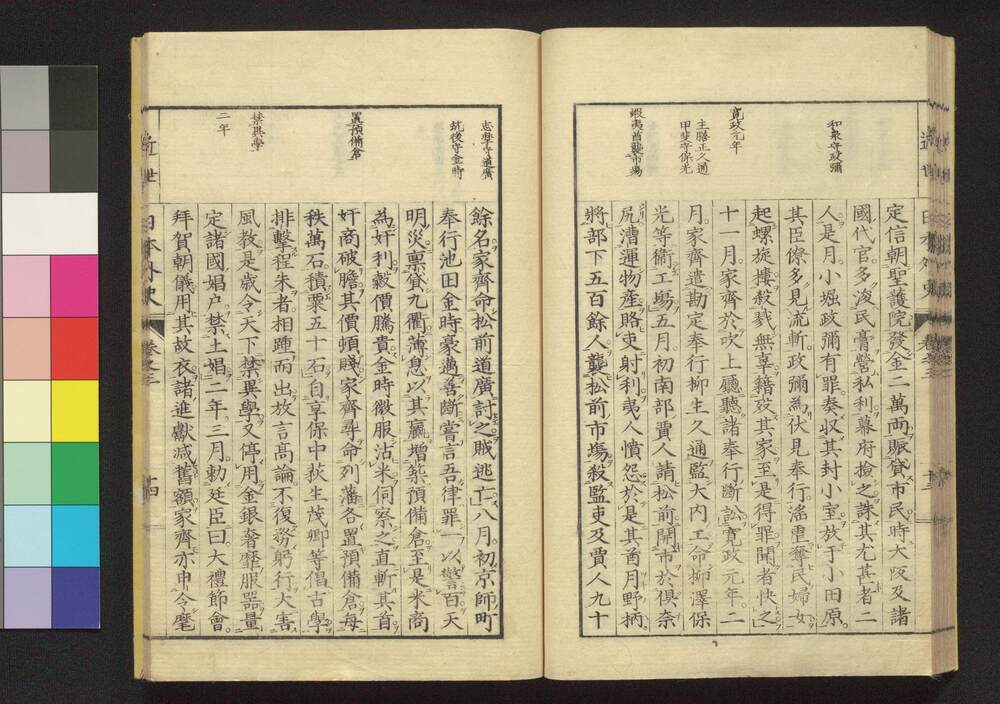 和泉守政彌
寛政元年
主膳正久通
甲斐守保光
蝦夷酋襲市場
定信朝聖護院發金二萬兩賑貸市民時大阪及諸
國代官多浚民膏營私利幕府撿之誅其尤甚者二
人是月小堀政彌有罪奏收其封小室放于小田原
其臣僚多見流斬政彌為伏見奉行滛重奪民婦女
起螺旋樓殺戮無辜籍歿其家至是得罪聞者快之
十一月家齊於吹上廳聽諸奉行斷訟寛政元年二
月家齊遣勘定奉行柳生久通監大内工命柳澤保
光等衞工場五月初南部賈人請松前開市於俱奈
尻漕運物產賂吏射利夷人憤怨於是其酋月野柄
將部下五百餘人襲松前市場殺監吏及賈人九十
近世日本外史 卷之三 十三
志摩守道廣
筑後守金時
置預備倉
禁異學
二年
餘名家齊命松前道廣討之賊逃亡八月初京師町
奉行池田金時豪邁善斷嘗言吾律罪一以警百天
明災稟貸九衢薄息以其贏增築預備倉至是米商
為奸利穀價騰貴金時微服沽米伺察之直斬其首
奸商破膽其價頓賤家齊尋命列藩各置預備倉每
秩萬石積粟五十石自享保中荻生茂卿等倡古學
排擊程朱者相踵而出放言高論不復務躬行大害
風教是歲令天下禁異學又停用金銀奢靡服器量
定諸國娼户禁土娼二年三月勅廷臣曰大禮節會
拜賀朝儀用其故衣諸進獻减舊額家齊亦申令麾
近世日本外史 卷之三 十四